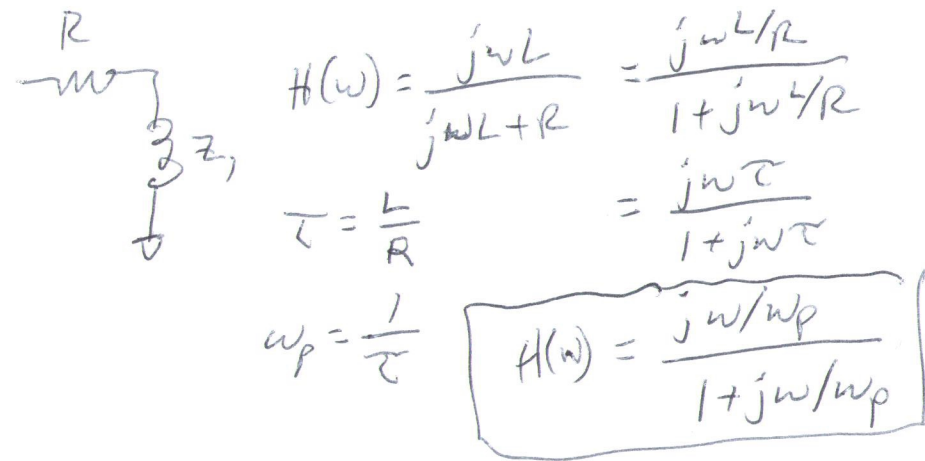 R
Z₁
H(ω) = jωL / (jωL + R) = (jωL/R) / (1 + jωL/R)
τ = L/R
= jωτ / (1 + jωτ)
ωp = 1/τ
H(ω) = (jω/ωp) / (1 + jω/ωp)